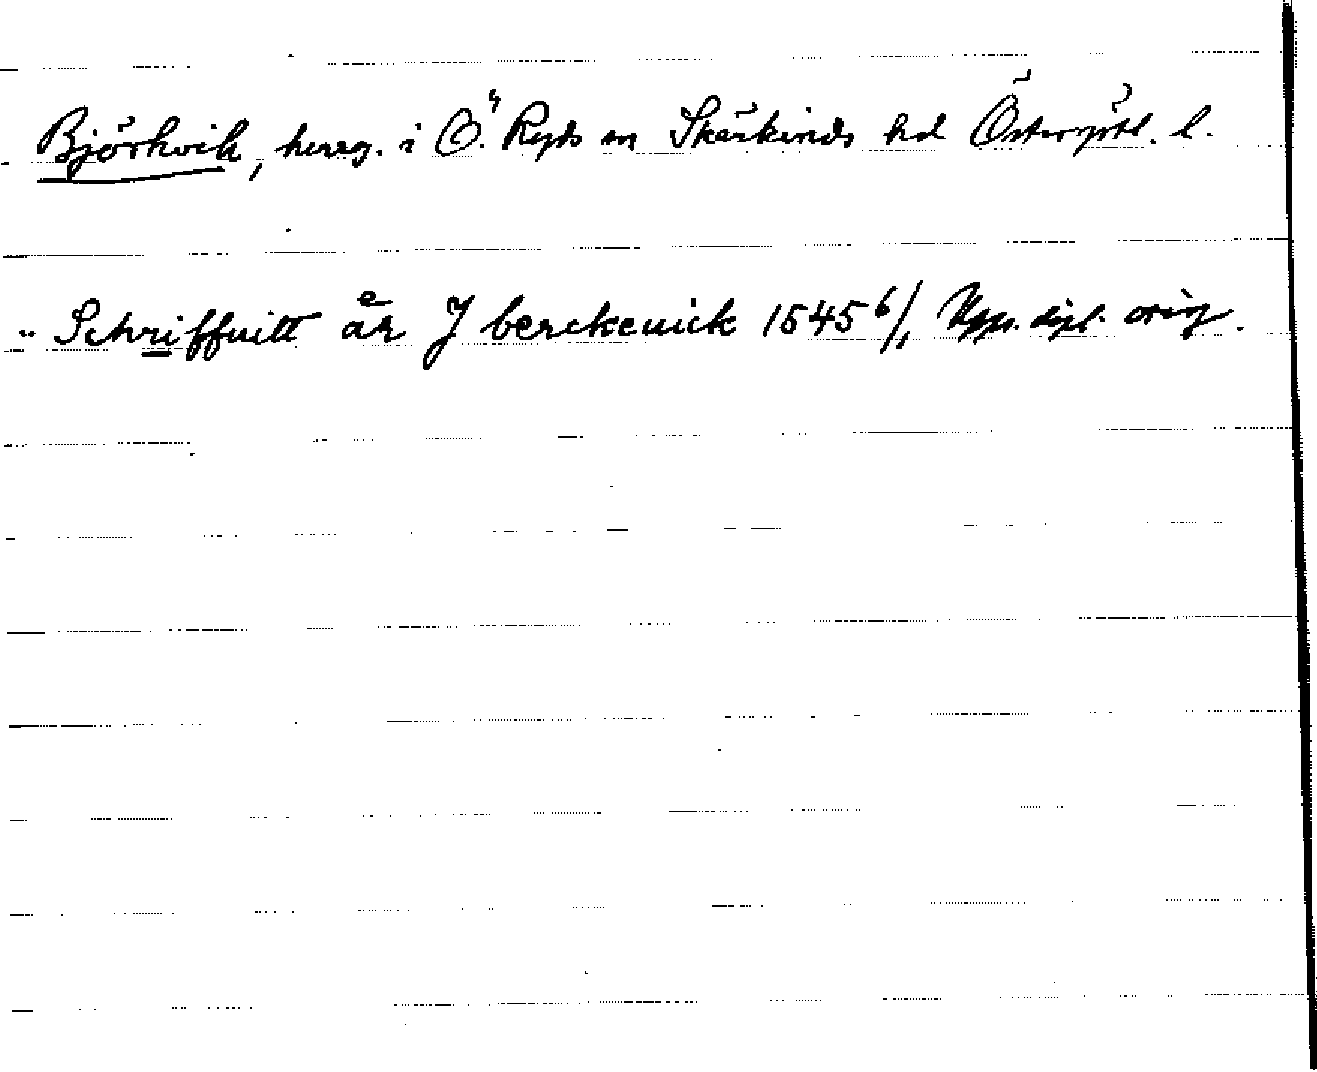 Björkvik, herrg. i Ö. Ryds sn Skärkinds hd Östergötl. l.
" Schriffuitt år J berckeuick 1545 6/1 Upps. dipl. orig.